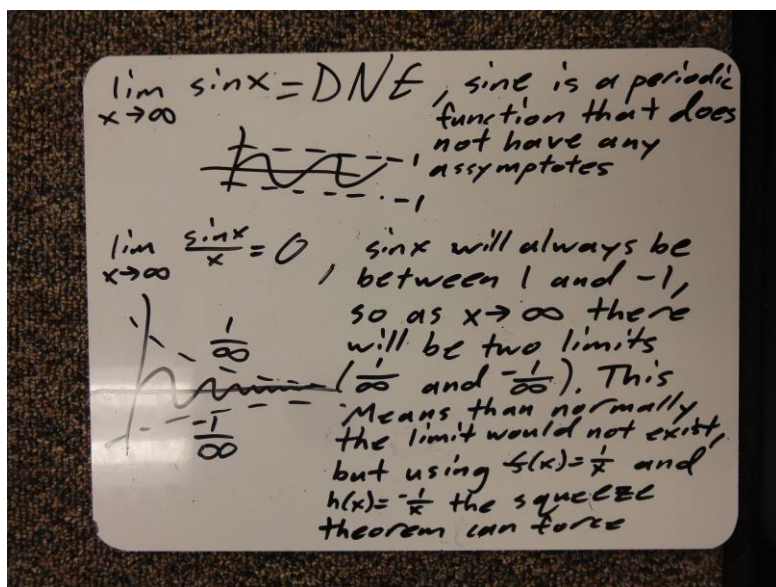 lim sinx = DNE, sine is a periodic
x→∞ function that does
not have any
1 assymptotes
-1
lim sinx/x = 0, sinx will always be
x→∞ between 1 and -1,
so as x→∞ there
1/∞ will be two limits
(1/∞ and -1/∞). This
Means than normally
-1/∞ the limit would not exist,
but using f(x)=1/x and
h(x)=-1/x the squeeze
theorem can force